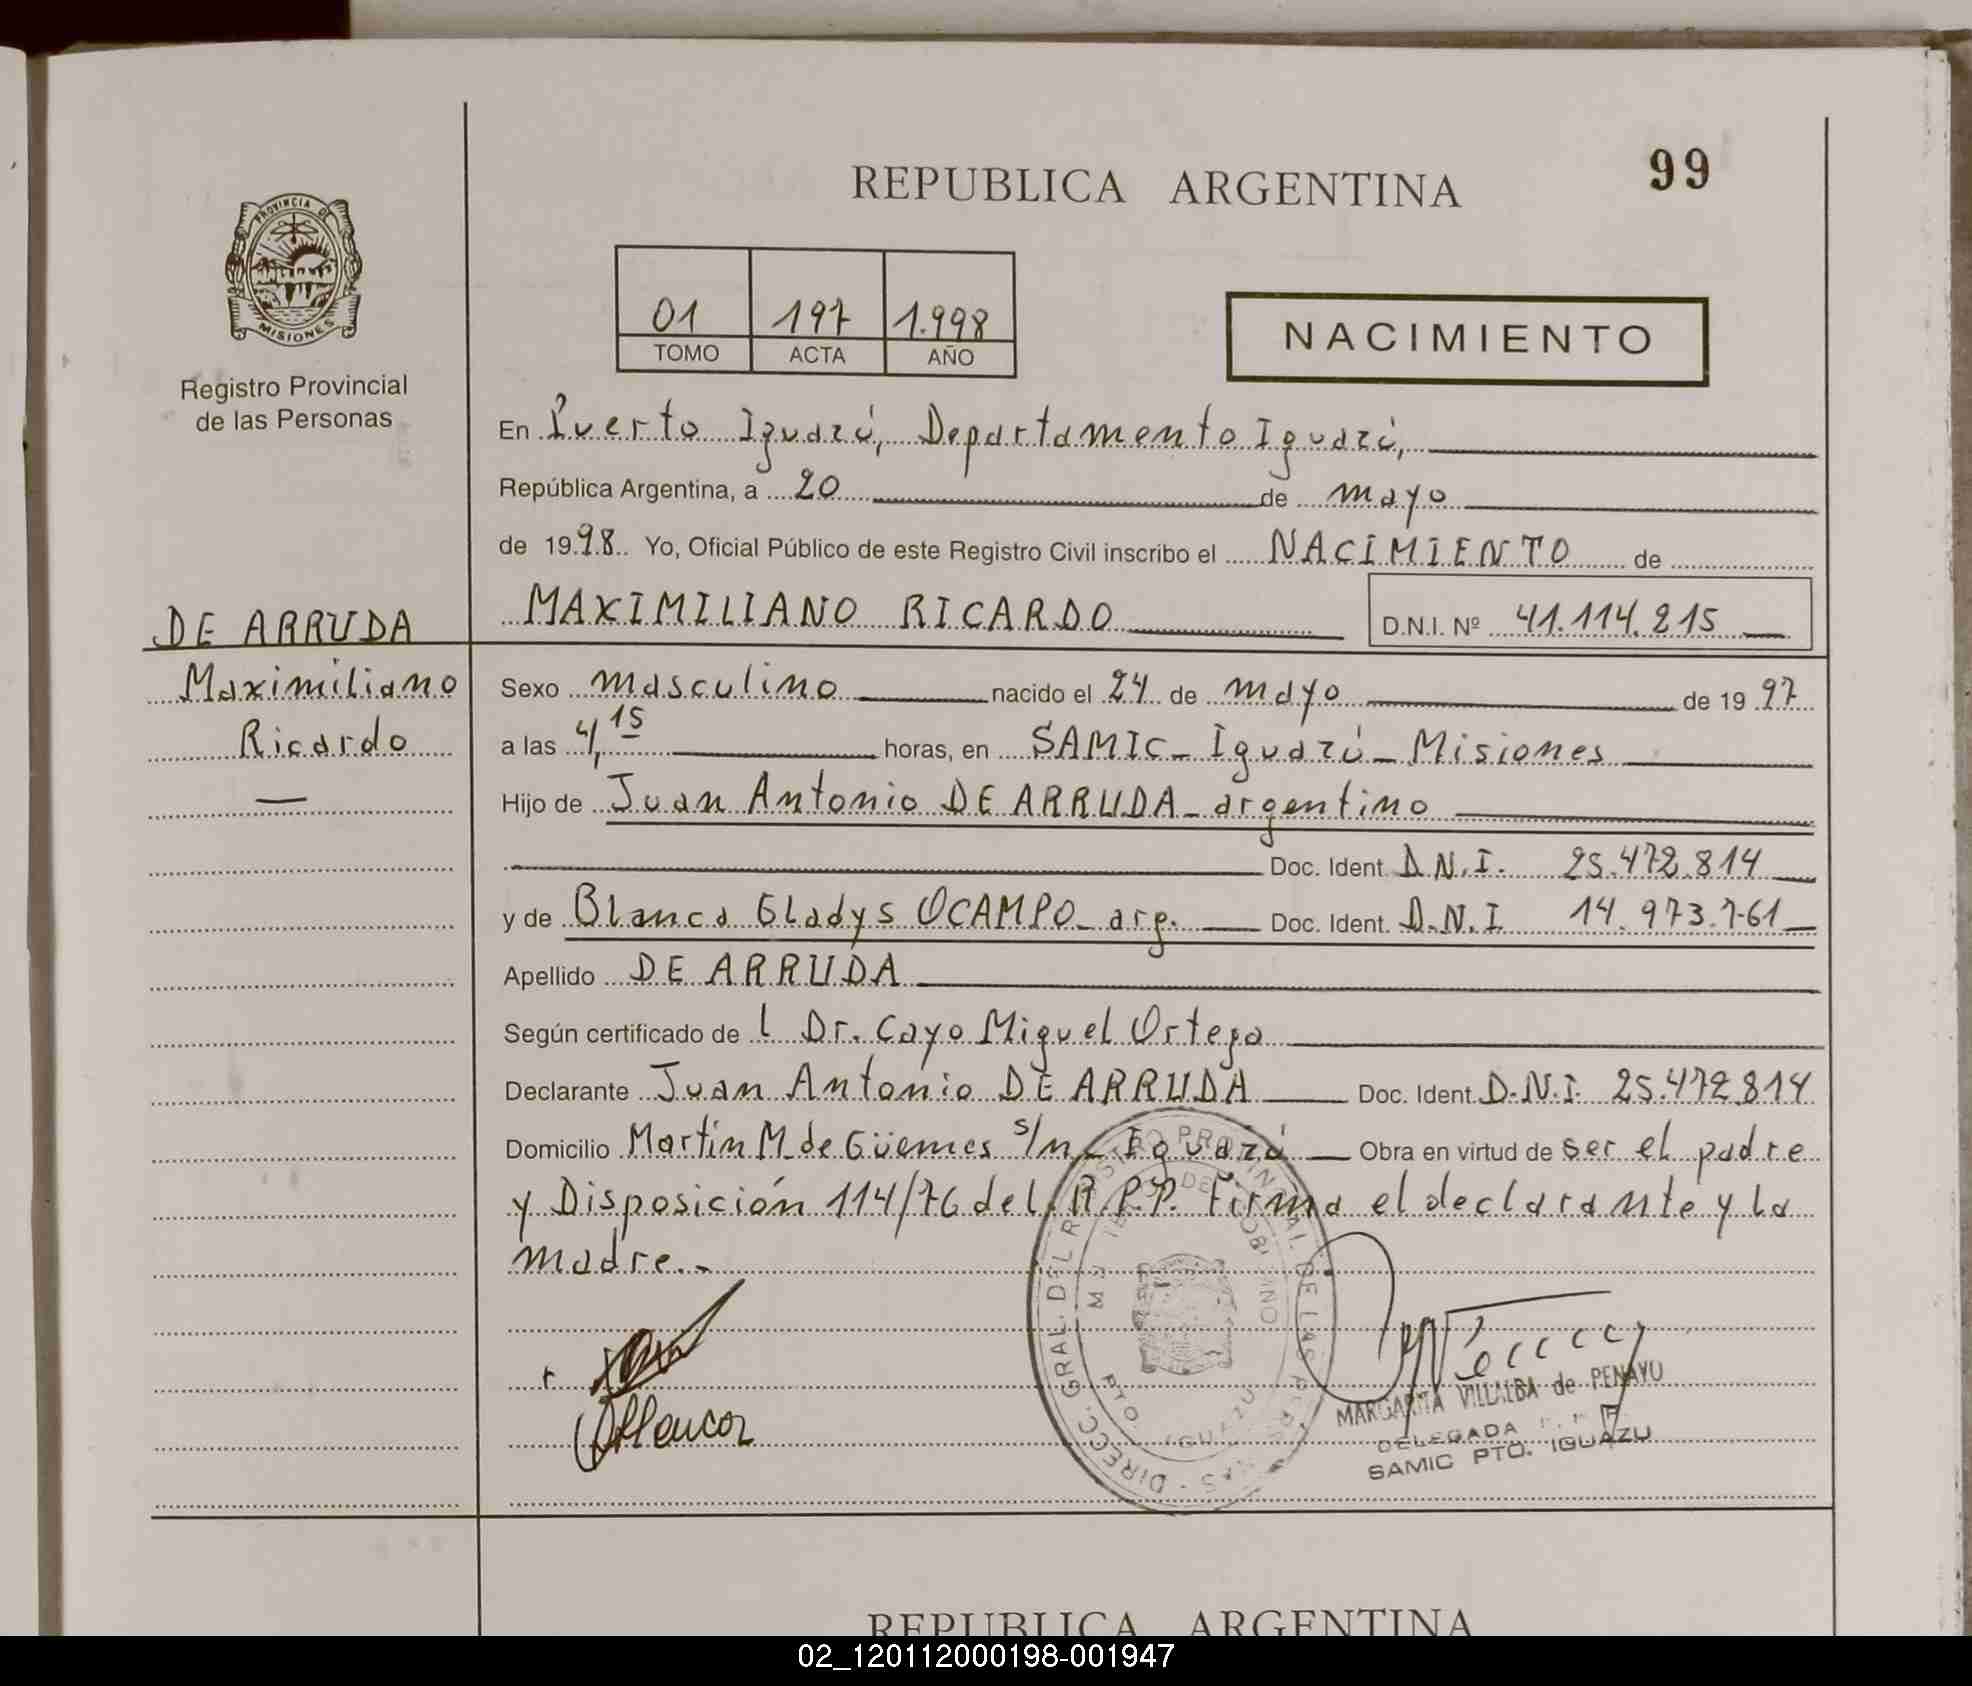 99
REPUBLICA ARGENTINA
PROVINCIA DE
MISIONES
Registro Provincial
de las Personas
01 197 1.998
TOMO ACTA AÑO
NACIMIENTO
En Puerto Iguazú, Departamento Iguazú,
República Argentina, a 20 de mayo
de 1998. Yo, Oficial Público de este Registro Civil inscribo el NACIMIENTO de
DE ARRUDA
MAXIMILIANO RICARDO D.N.I. Nº 41.114.215
Maximiliano
Ricardo
Sexo masculino nacido el 24 de mayo de 19 97
a las 4,15 horas, en SAMIC - Iguazú - Misiones
Hijo de Juan Antonio DE ARRUDA - argentino
Doc. Ident. D.N.I. 25.472.814
y de Blanca Gladys OCAMPO - arg. Doc. Ident. D.N.I 14.973.761
Apellido DE ARRUDA
Según certificado de l Dr. Cayo Miguel Ortega
Declarante Juan Antonio DE ARRUDA Doc. Ident. D.N.I. 25.472.814
Domicilio Martín M. de Güemes s/n - Iguazú Obra en virtud de ser el padre
y Disposición 114/76 del R.P.P. Firma el declarante y la
madre.-
DIRECC. GRAL. DEL REGISTRO PROVINCIAL DE LAS PERSONAS
PTO. IGUAZU
MARGARITA VILLALBA de PENAYO
DELEGADA
SAMIC PTO. IGUAZU
REPUBLICA ARGENTINA
02_120112000198-001947